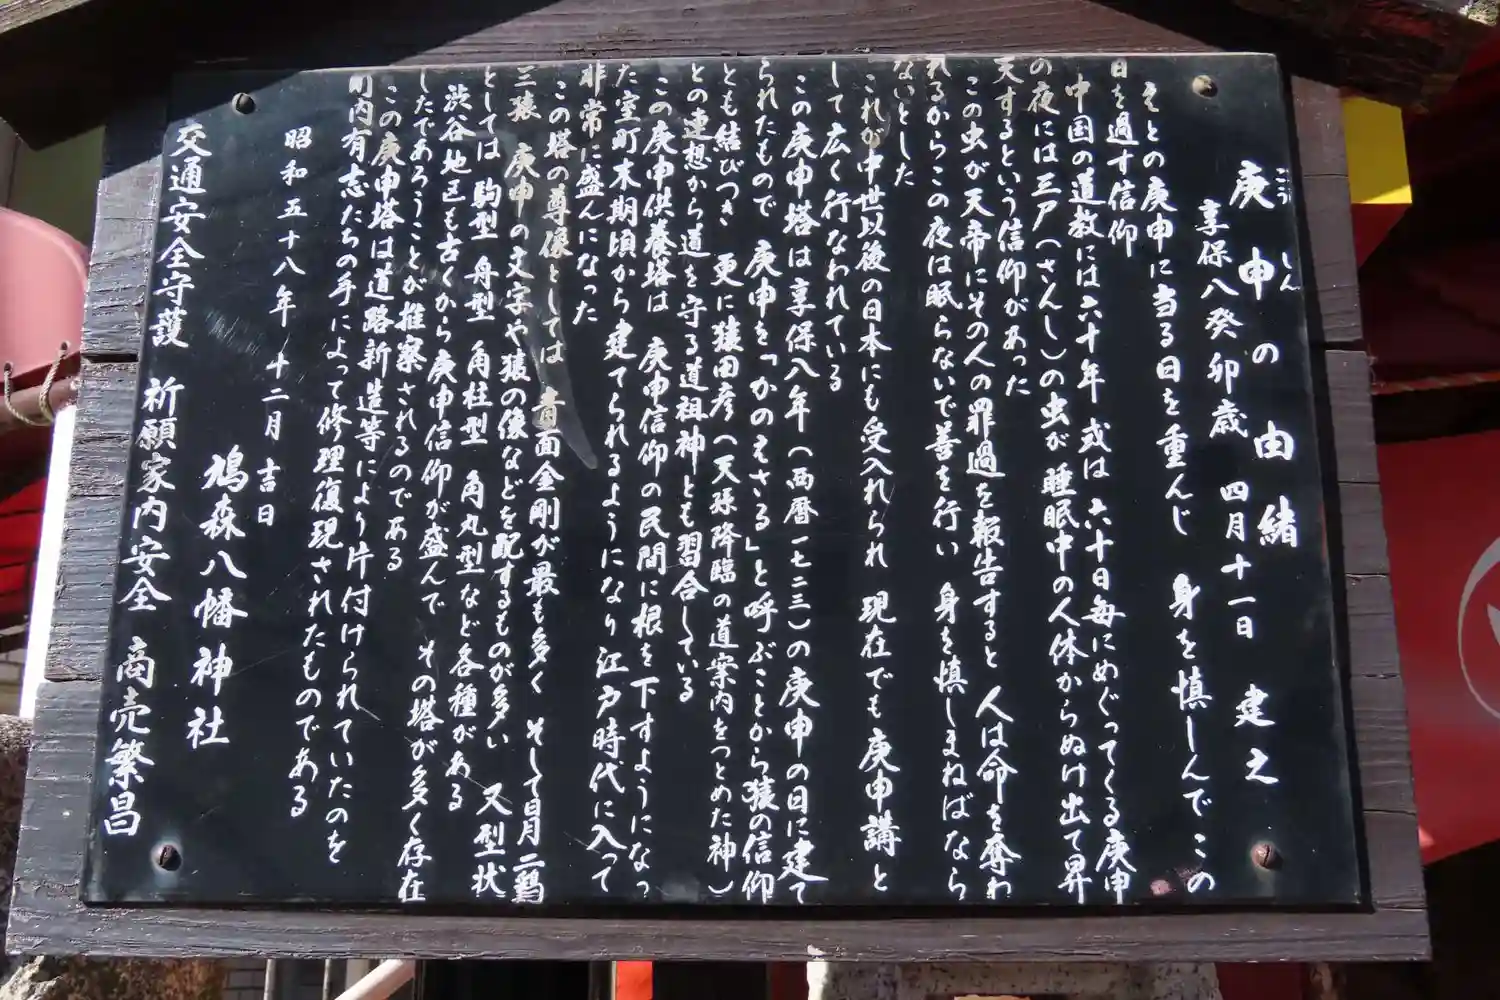 庚申の由緒
こうしん
享保八癸卯歳 四月十一日 建之
えとの庚申に当る日を重んじ 身を慎しんでこの
日を過す信仰
中国の道教には六十年 或は 六十日毎にめぐってくる庚申
の夜には三尸(さんし)の虫が睡眠中の人体からぬけ出て昇
天するという信仰があった
この虫が天帝にその人の罪過を報告すると 人は命を奪わ
れるからこの夜は眠らないで善を行い 身を慎しまねばなら
ないとした
これが中世以後の日本にも受入れられ 現在でも庚申講と
して広く行なわれている
この庚申塔は享保八年(西暦一七二三)の庚申の日に建て
られたもので 庚申を「かのえさる」と呼ぶことから猿の信仰
とも結びつき 更に猿田彦(天孫降臨の道案内をつとめた神)
との連想から道を守る道祖神とも習合している
この庚申供養塔は 庚申信仰の民間に根を下すようになっ
た室町末期頃から 建てられるようになり江戸時代に入って
非常に盛んになった
この塔の尊像としては 青面金剛が最も多く そして日月二鶏
三猿 庚申の文字や猿の像などを配するものが多い 又型状
としては 駒型 舟型 角柱型 角丸型など各種がある
渋谷地区も古くから庚申信仰が盛んで その塔が多く存在
したであろうことが推察されるのである
この庚申塔は道路新造等により片付けられていたのを
町内有志たちの手によって修理復現されたものである
昭和五十八年 十二月 吉日
鳩森八幡神社
交通安全守護 祈願家内安全 商売繁昌